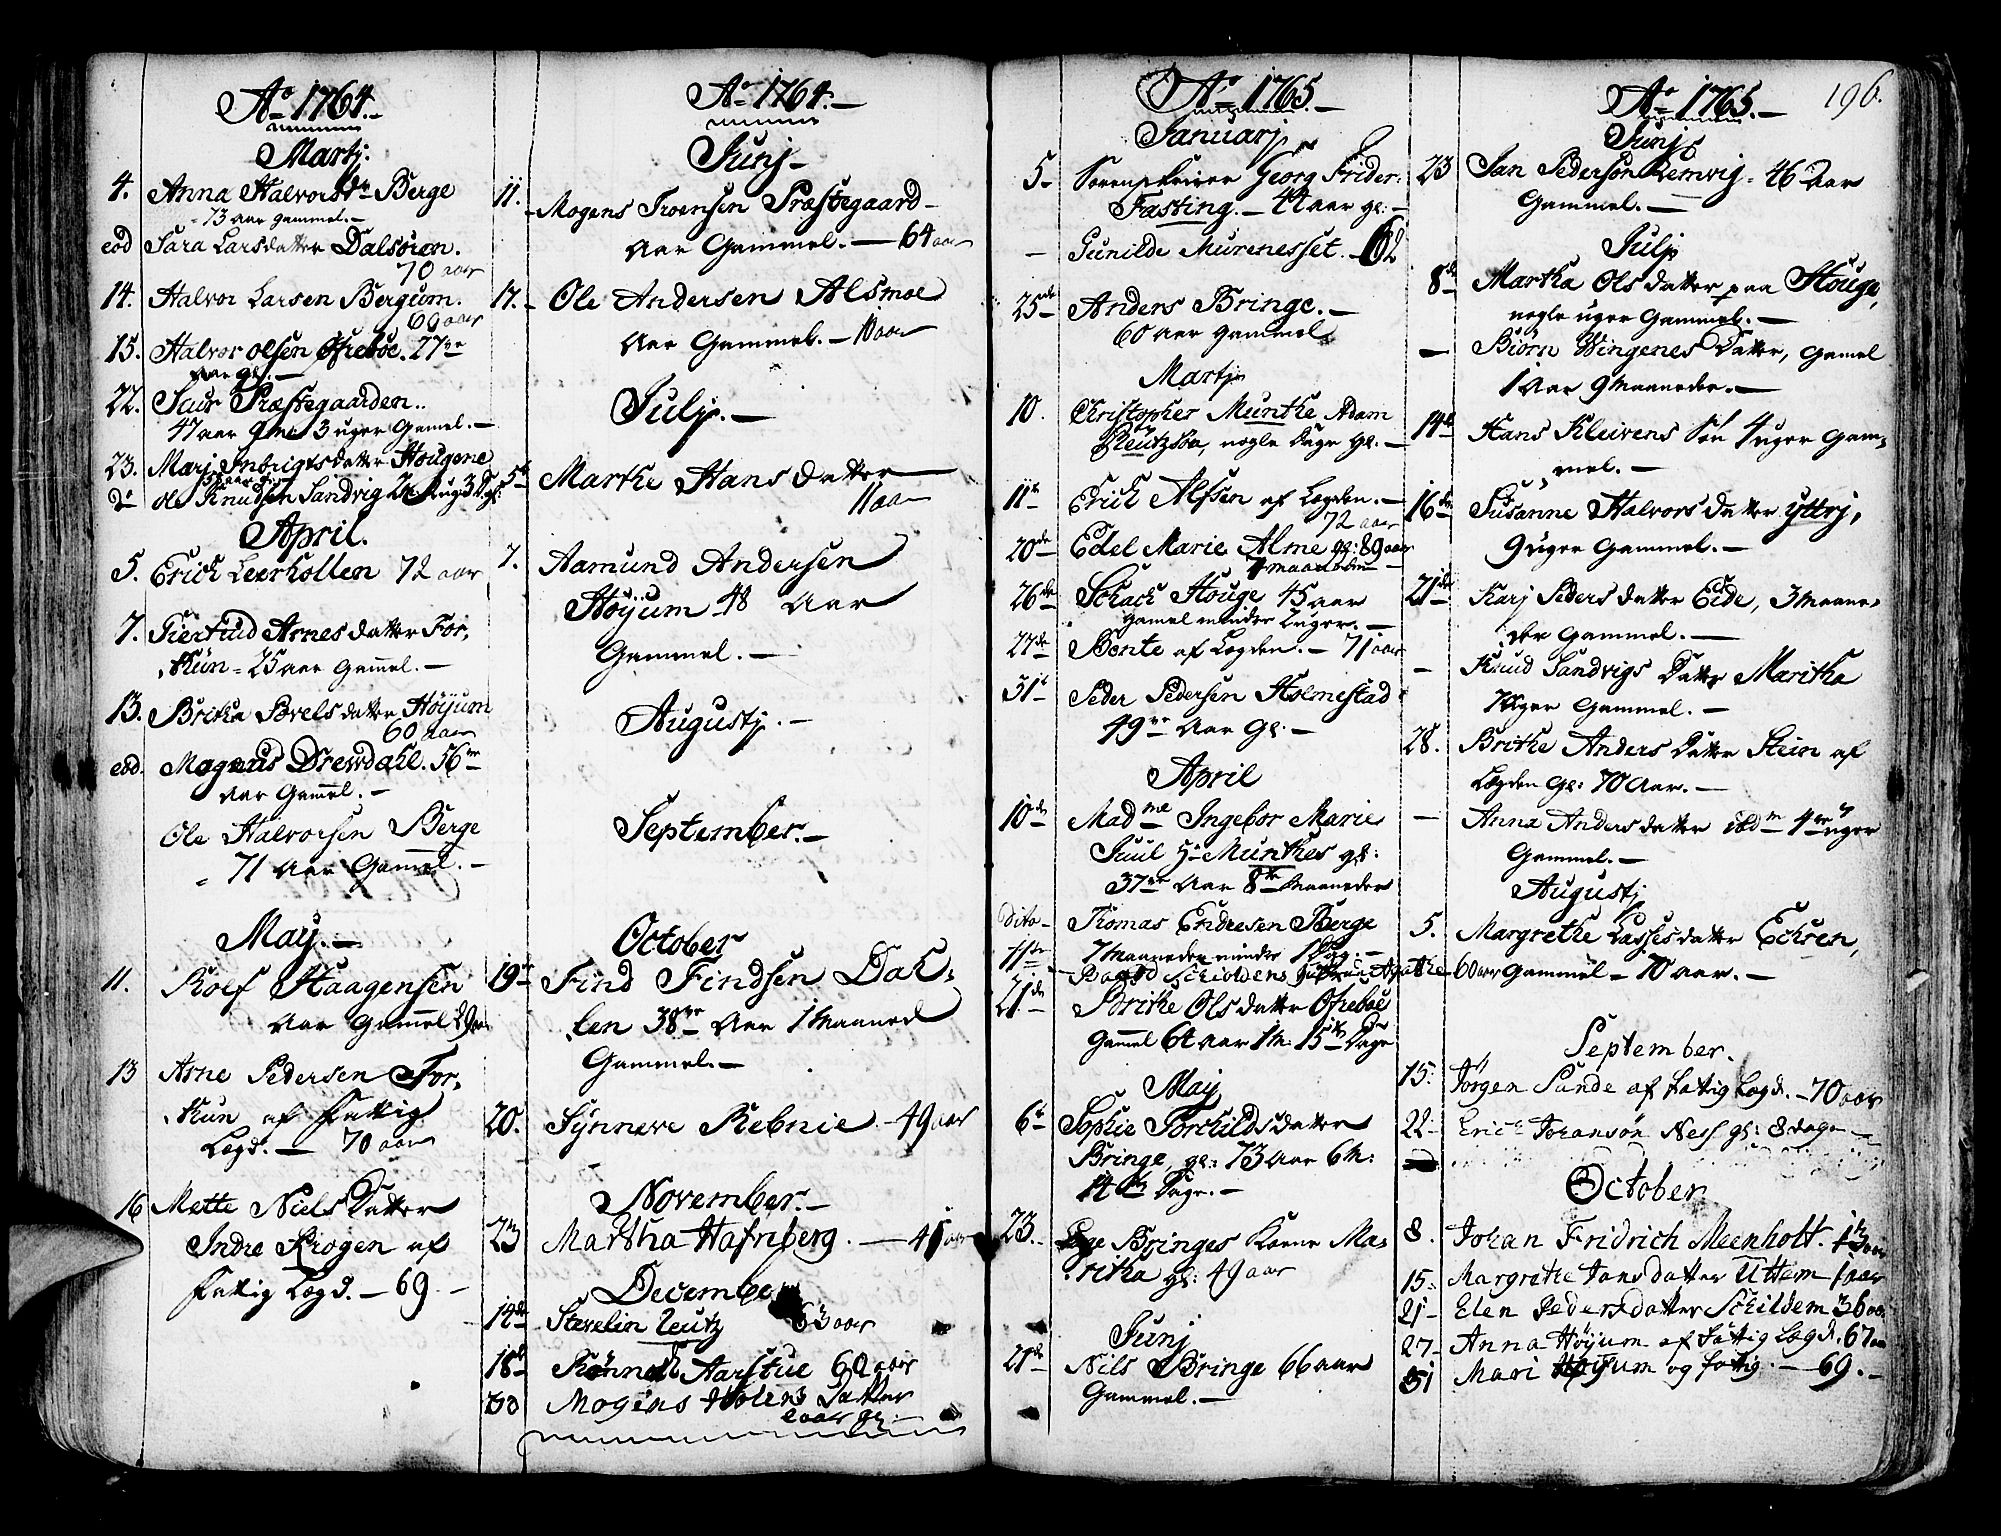 Ao 1764.-
Martj.
4. Anna Halvorsdr Berge
- 73 aar gammel.-
eod Sara Larsdatter Dalsøren.
70 aar
14. Halvor Larsen Bergum.
60 aar
15. Halvor Olsen Ofrebøe. 27de
aar gl. -
22. Siur Præstegaarden..
47 aar 9 mr 3 uger Gamel.-
23. Marj Ingrigtsdatter Hougene
do Ole Knudsen Sandvig
April.
5. Erich Leerhollen 72 aar
7. Giertrud Arnesdatter For,
Kun - 25 aar gamel.-
13. Britha Povelsdatter Høyum
60 aar
eod. Magnus Drewdahl. 56
aar Gamel. -
Ole Halvorsen Berge
- 71 Aar Gamel. -
May.-
11. Roef Haagensen
Aar Gamel 89
13 Arne Pedersen For,
Kun af Fattig
Legd. - 70 aar
16 Mette Niels Datter
Indre Krogen af
Fattig Legd. - 69. -
Ao 1764.-
Junj-
11. Mogens Troensen Præstegaard-
Aar Gammel. - 64 aar
17. Ole Andersen Alsmoe
Aar Gammel. - 10 aar
Julj. -
5te Marthe Hans datter
11 aar
7. Aamund Andersen
Høyum 48 Aar
Gammel. -
Augustj. -
September. -
October
19 Find Findsen Dah-
len 38 Aar 1 Maaned
Gammel. -
20. Synneve Rebnie. - 49 aar
November. -
23 Martha Hafnberg. - 41 aar
December
14de Stevelin Leutz 63 aar
18d Aarstue 60 aar
30 Mogens Holens Datter
2 aar gl. -
Ao 1765.-
Januarj
5- Sorenskriver Georg Frider:
Fasting. - 44 aar gl: -
- Gunilde Murenesset. - 62
25de Anders Bringe. -
60 aar gammel
Martj
10. Christopher Munthe Adam
Reutzsba, nogle Dage gl. -
11te Erich Alfsen af Legden. -
72 aar
20de Edel Marie Alme gl: 89 aar
7 maaneder -
26de Schack Houge 45 aar
Gamel minder 2 uger. -
27de Bente af Legden. - 71 aar
31te Peder Pedersen Holmestad
49 Aar Gl. -
April
10de Madme Ingebor Marie
Juul Hr Munthes gl:
37 Aar 8 Maaneder
Dito- Thomas Endresen Berge
7 Maaneder minder 1 Dag. -
11te
60 aar
21de Brithe Olsdatter Ofrebøe
Gammel 64 aar 1 M: 15 Dage
May
6te Sophie Torchildsdatter
Bringe, gl: 73 Aar 6 M:
14 Dage. -
23. Bringes Koene Ma-
ritha gl: 49 aar
Junj
21de Nils Bringe 66 aar
Gammel. -
Ao 1765.- 196.
Junj
23 Jan Pederson Remvig - 46 Aar
Gammel. -
Julj
8de Martha Olsdatter paa Houge,
nogle uger Gammel. -
- Biørn Wingenes Datter, Gamel
1 Aar 9 Maaneder. -
14de Hans Kleivens Søn 4 uger Gam-
mel. -
16de Susanne Halvorsdatter yttrj,
9 uger Gammel. -
21de Karj Pedersdatter Eide, 3 Maane-
der Gammel. -
- Knud Sandvigs Datter Maritha
uger Gammel. -
28. Brithe Anders Datter Stein af
Legden gl: 70 Aar. -
- Anna Andersdatter ibdm 4 uger
Gammel. -
Augustj
5. Margrethe Lassesdatter Echren,
Gammel - 70 aar. -
September.
15. Jørgen Sunde af Fattig Legd. - 70 aar
22- Erich Johansøn Ness gl: 8 dage -
October
8. Johan Fridrich Meenholt. 13 aar
15: Margrethe Jansdatter Uttem 1 aar
21- Elen Pedersdatter Schildem 36 aar
27- Anna Høyum af Fattig Legd. 67 aar
31 Mari Høyum og fattig. - 69. -